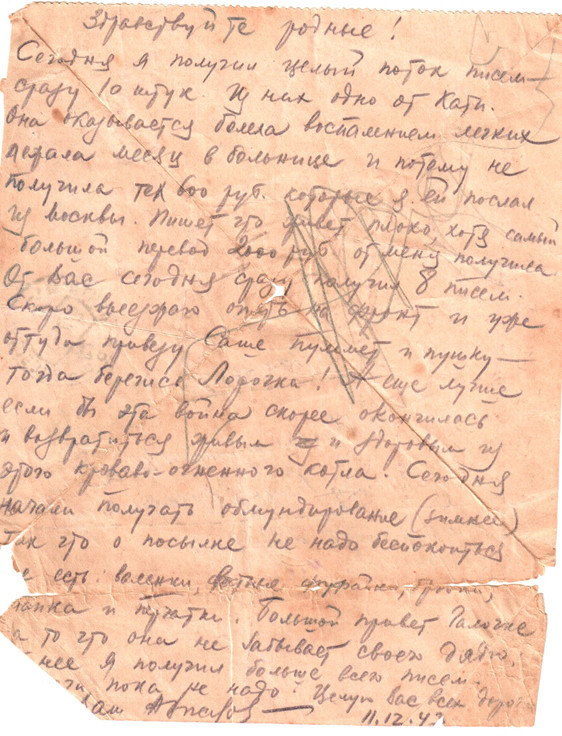 Здравствуйте родные!
Сегодня я получил целый поток писем —
сразу 10 штук Из них одно от Кати.
Она оказывается болела воспалением легких
лежала месяц в больнице и потому не
получила тех 600 руб. которые я ей послал
из Москвы. Пишет что живет плохо, хотя самый
большой перевод 2000 руб от меня получила
От Вас сегодня сразу получил 8 писем.
Скоро выезжаю опять на фронт и уже
оттуда привезу Саше пулемет и пушку —
тогда берегись Лорочка! А еще лучше
если бы эта война скорее окончилась
и возвратиться живым и здоровым из
этого кроваво-огненного котла. Сегодня
начали получать обмундирование (зимнее)
Так что о посылке не надо беспокоиться
есть валенки, ватные
шапка и перчатки. Большой привет Галочке
за то что она не забывает своего дядю.
нее я получил больше всего писем.
пока не надо! Целую Вас всех
Ваш
11.12.43